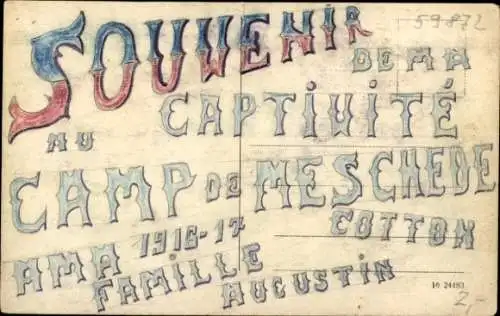 59872
SOUVENIR
DE MA
CAPTIVITÉ
AU
CAMP DE MESCHEDE
1916-17 COTTON
A MA FAMILLE AUGUSTIN
16 24483
2,-